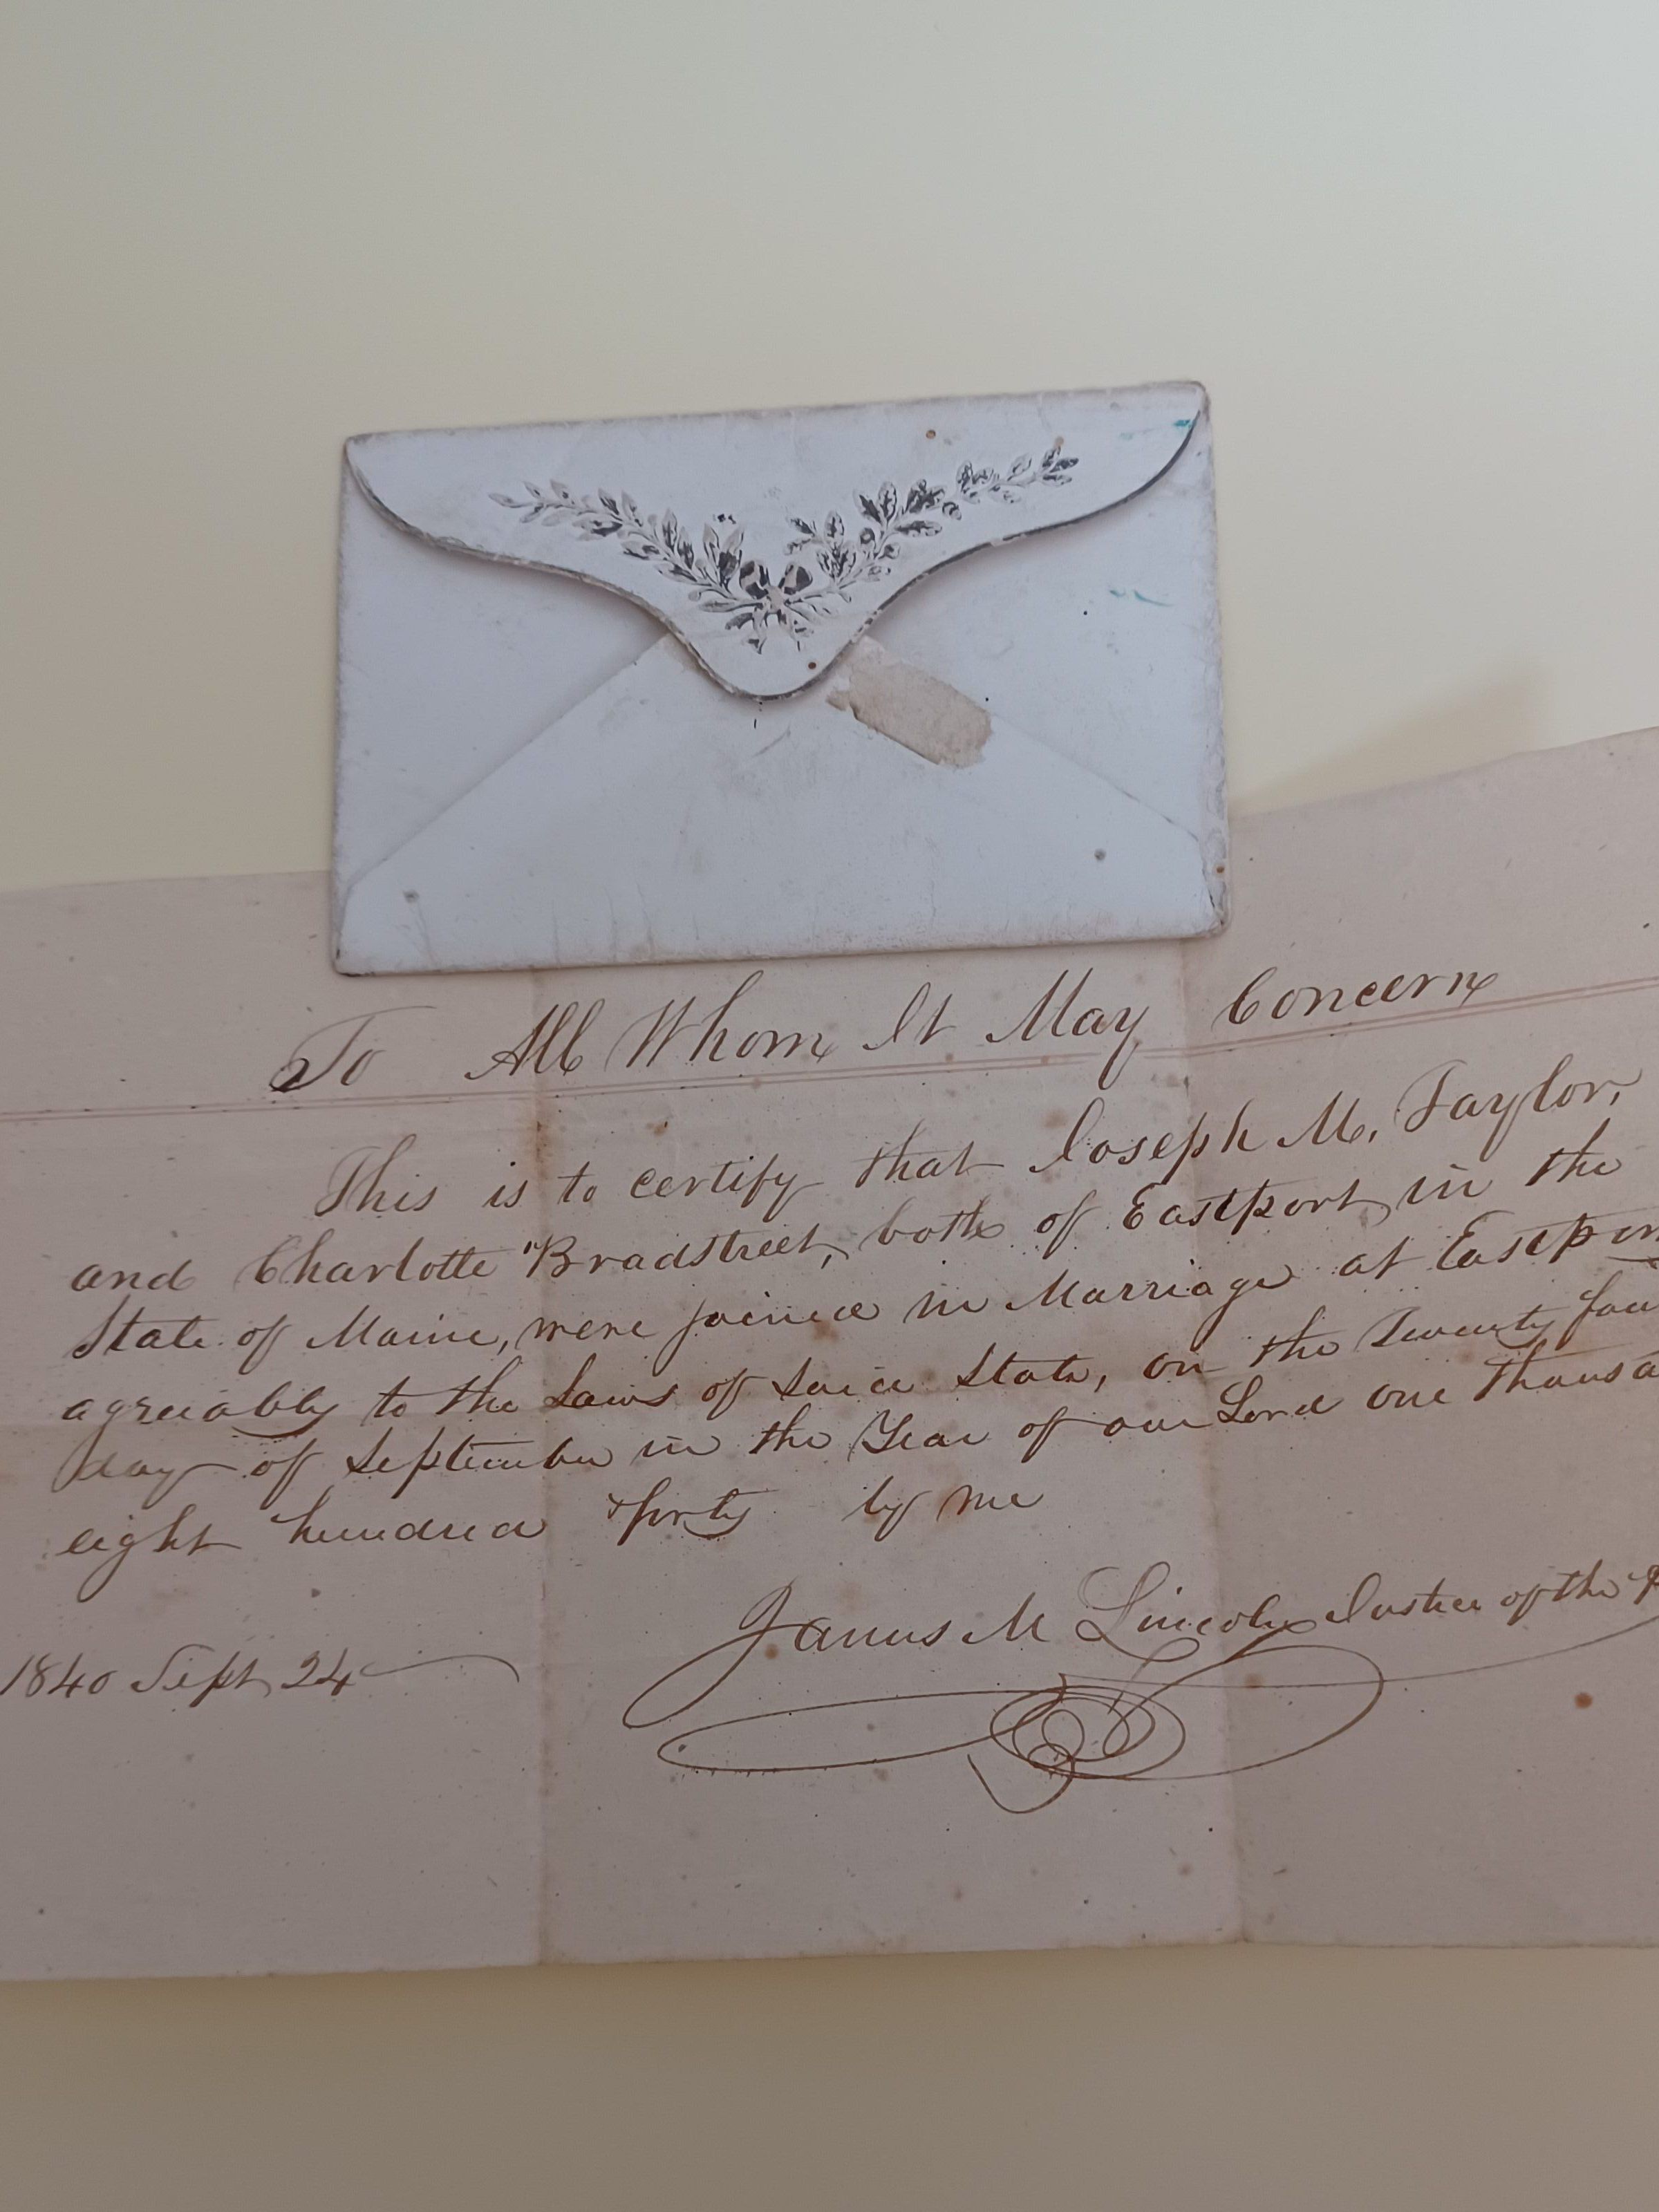 To All Whom It May Concern
This is to certify that Joseph M. Taylor,
and Charlotte Bradstreet, both of Eastport, in the
State of Maine, were joined in Marriage at Eastpor
agreeably to the Laws of said State, on the Twenty four
day of September in the Year of our Lord one thousa
eight hundred & forty by me
James M Lincoln Justice of the P
1840 Sept 24